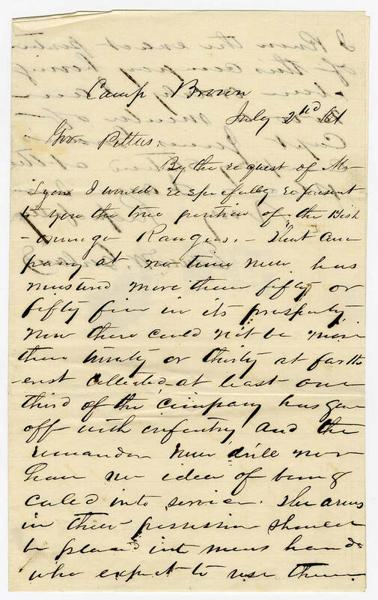 Camp Brown
July 2nd /61
Gov. Pettus
By the request of Mr
Lyons I would respectfully represent
to you the true position of the Dixie
Rangers. - That com
pany at no time never has
mustered more than fifty or
fifty five in its prosperity
now there could not be more
than twenty or thirty at farth
erest collected at least one
third of the company has gone
off with infantry and the
remainder never drill nor
have no idea of being
called into service. The arms
in their possession should
be placed into mens hands
who expect to use them.